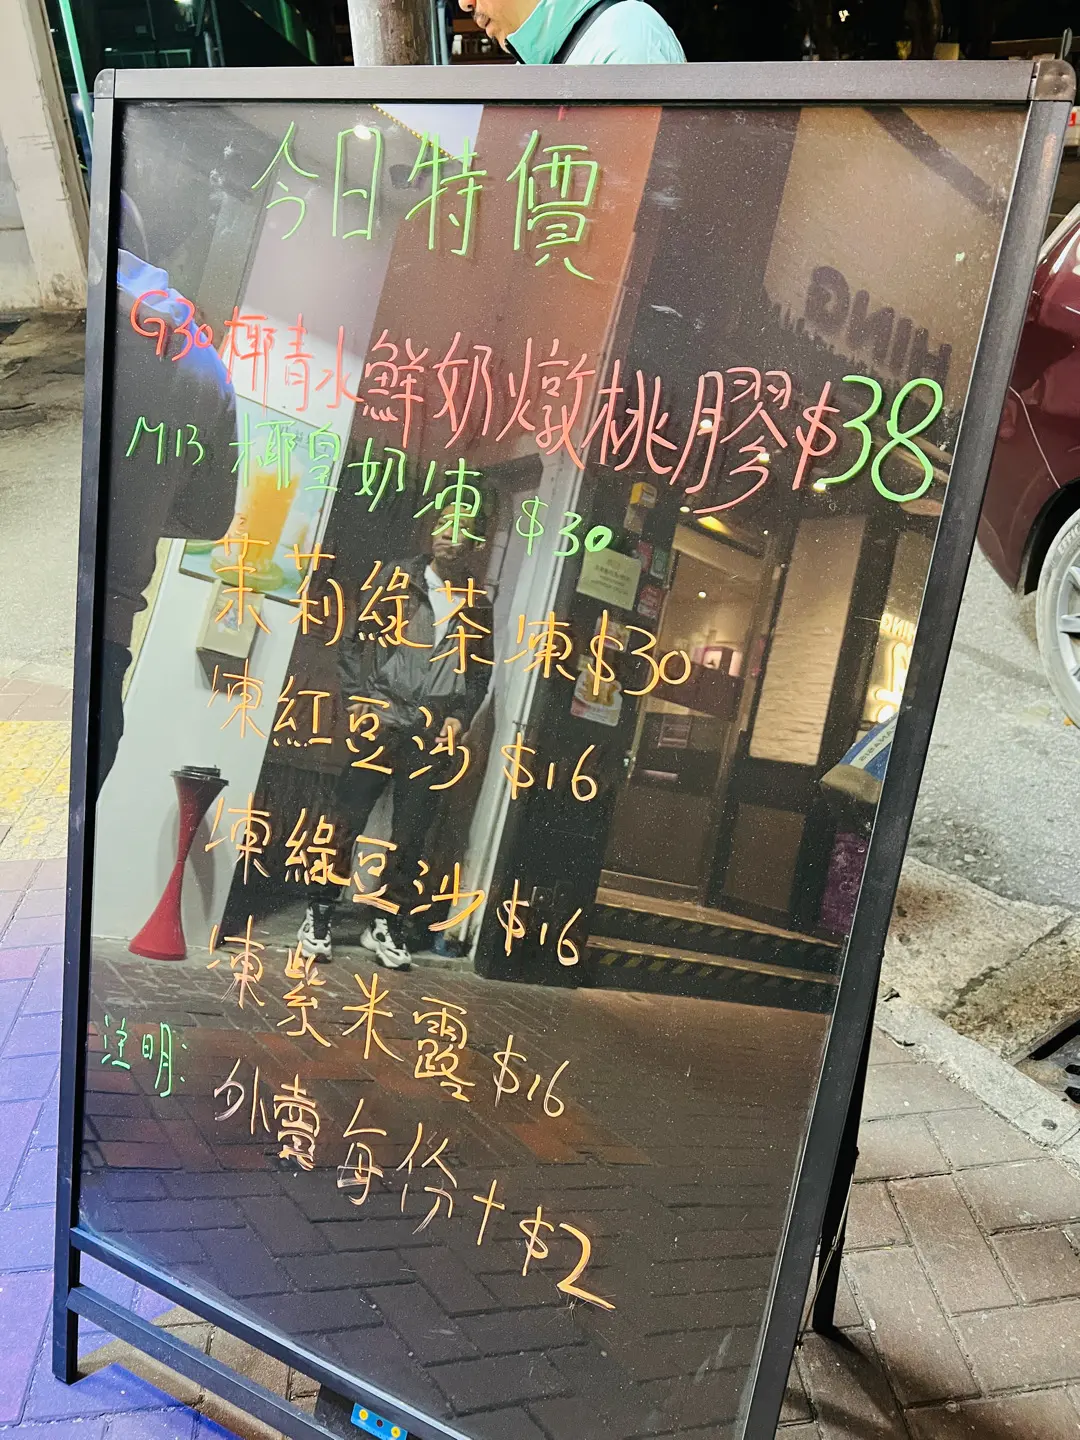 今日特價
G30椰青水鮮奶燉桃膠$38
M13 椰皇奶凍 $30
茉莉綠茶凍$30
凍紅豆沙 $16
凍綠豆沙 $16
凍紫米露 $16
注明:
外賣每份+$2